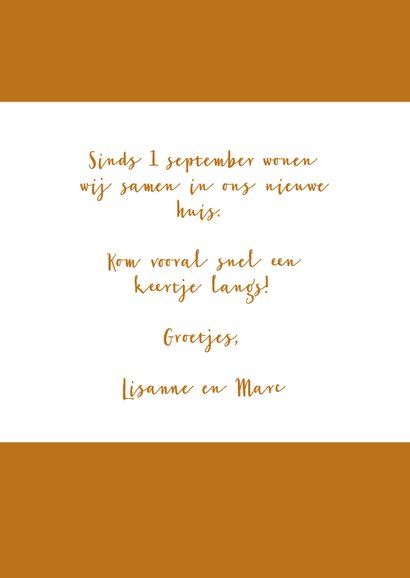 Sinds 1 september wonen
wij samen in ons nieuwe
huis.
Kom vooral snel een
keertje langs!
Groetjes,
Lisanne en Marc